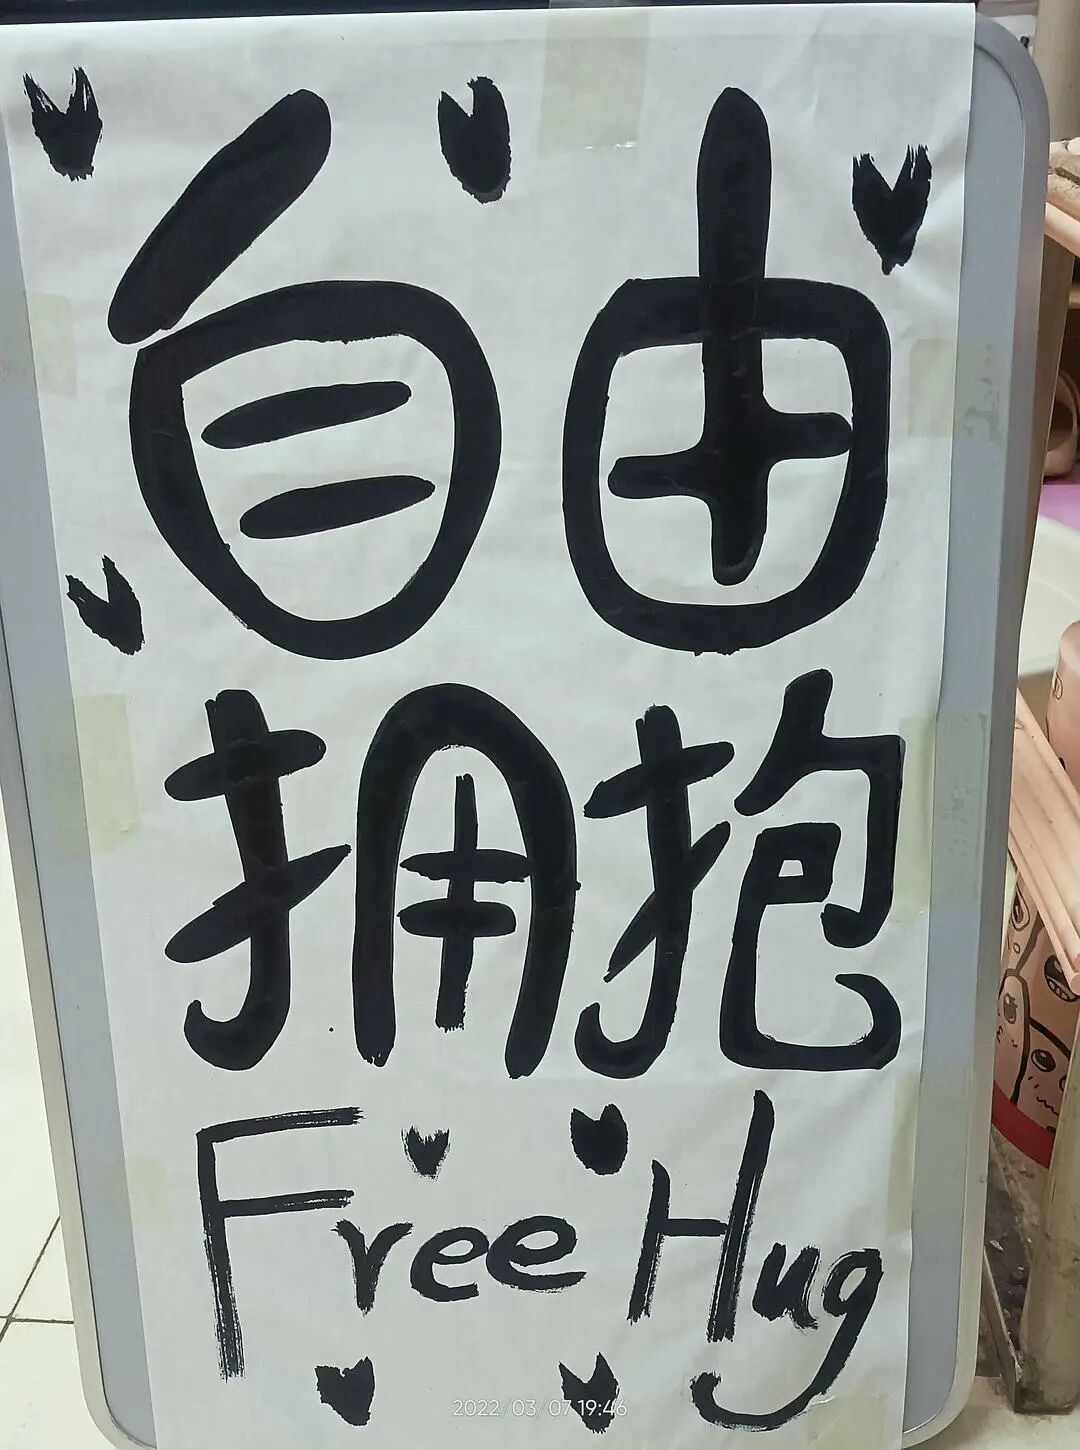 自由
拥抱
Free Hug
2022/03/07 19:46